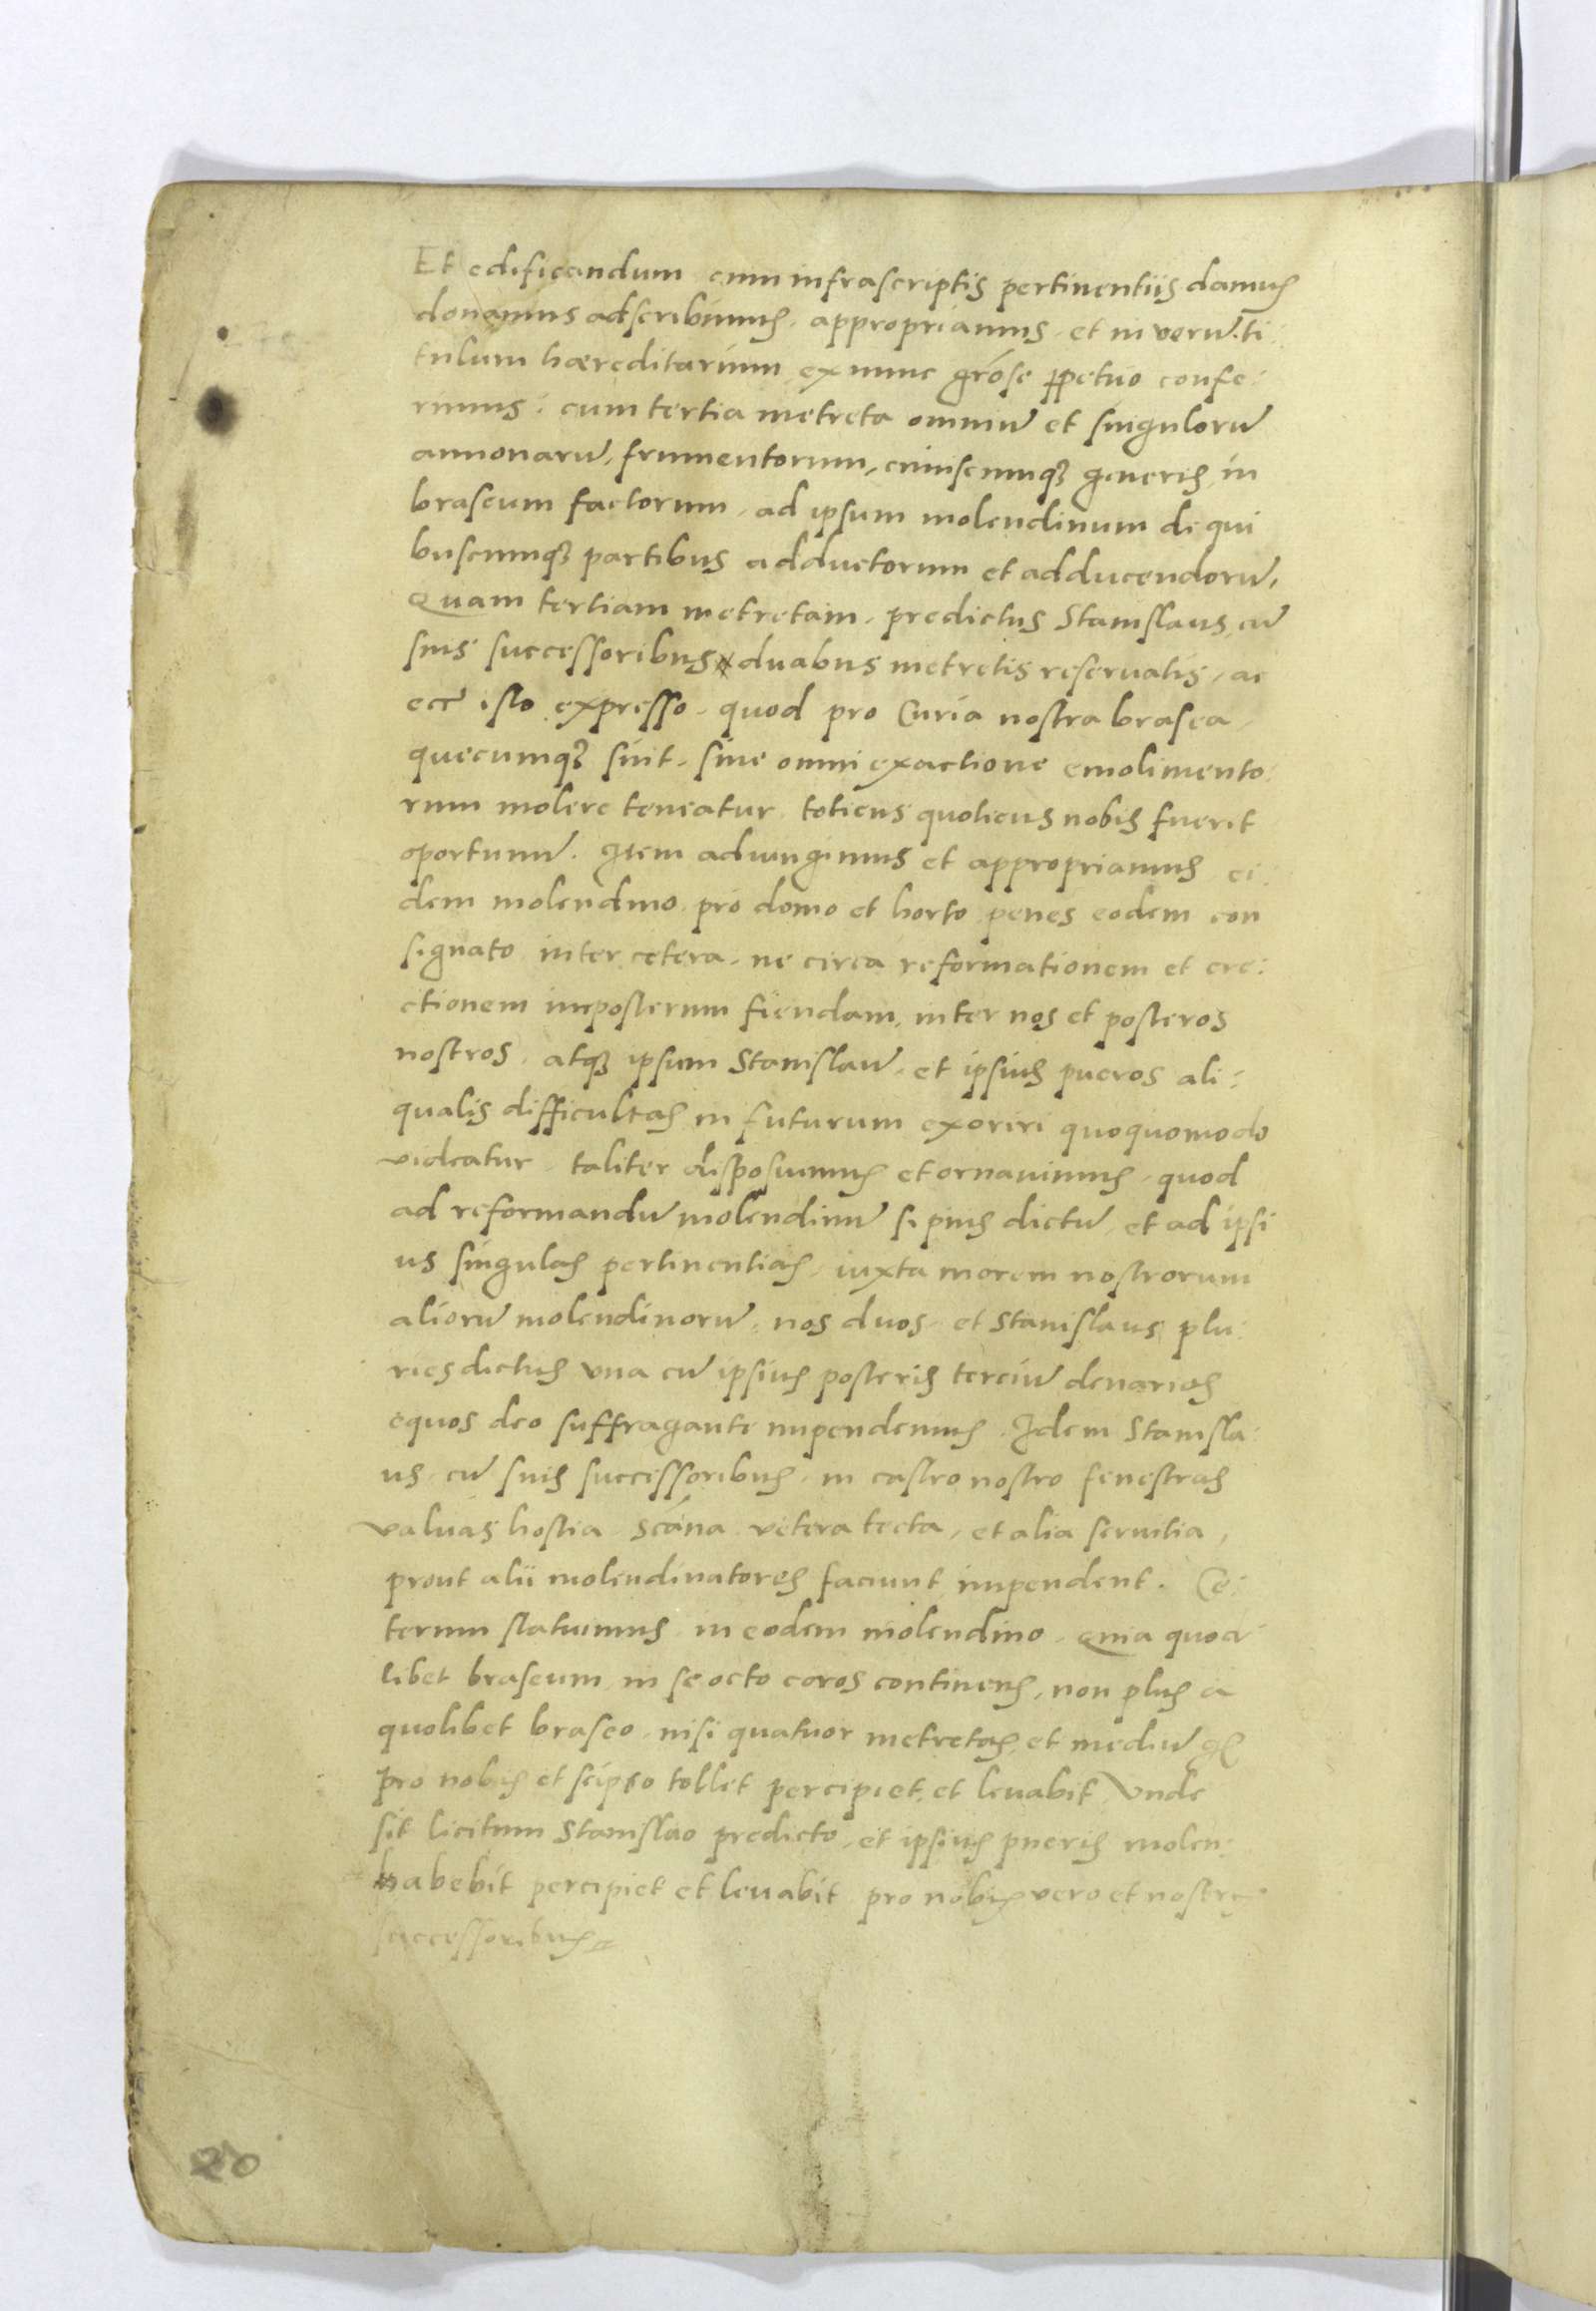 Et edificandum cum infrascriptis pertinentiis damus
donamus adscribimus. appropriamus. et in verũ ti:
tulum hæreditarium ex nunc grõse ꝑpetuo confe:
rimus: cum tertia metreta omniũ et singulorũ
annonarũ, frumentorum, cuiuscumqꝫ generis in
braseum factorum, ad ipsum molendinum de qui
buscumqꝫ partibus adductorum et adducendorũ,
Quam tertiam metretam, predictus Stanislaus, cũ
suis successoribus duabus metretis reseruatis, ac
ecĩ isto expresso, quod pro Curia nostra brasea
quecumqꝫ sint, sine omni exactione emolimento:
rum molere teneatur totiens quotiens nobis fuerit
oportunũ. Item adiungimus et appropriamus ei:
dem molendino pro domo et horto penes eodem con
signato inter cetera, ne circa reformationem et ere:
ctionem imposterum fiendam, inter nos et posteros
nostros, atqꝫ ipsum Stanislaũ, et ipsius pueros ali:
qualis difficultas in futurum exoriri quoquomodo
videatur, taliter disposuimus et ornauimus, quod
ad reformandũ molendinũ sepius dictũ, et ad ipsi
us singulas pertinentias, iuxta morem nostrorum
aliorũ molendinorũ, nos duos, et Stanislaus plu:
ries dictus vna cũ ipsius posteris terciũ denarios
equos deo suffragante impendemus. Idem Stanisla:
us cũ suis successoribus, in castro nostro fenestras
valuas hostia scána vetera tecta, et alia seruitia,
prout alii molendinatores faciunt impendent. Ce:
terum statuimus in eodem molendino, quia quod
libet braseum in se octo coros continens, non plus a
quolibet braseo, nisi quatuor metretas, et mediũ
pro nobis et seipso tollet percipiet et leuabit Vnde
sit licitum Stanislao predicto, et ipsius pueris molen:
habebit percipiet et leuabit pro nobis vero et nostris
successoribus
20